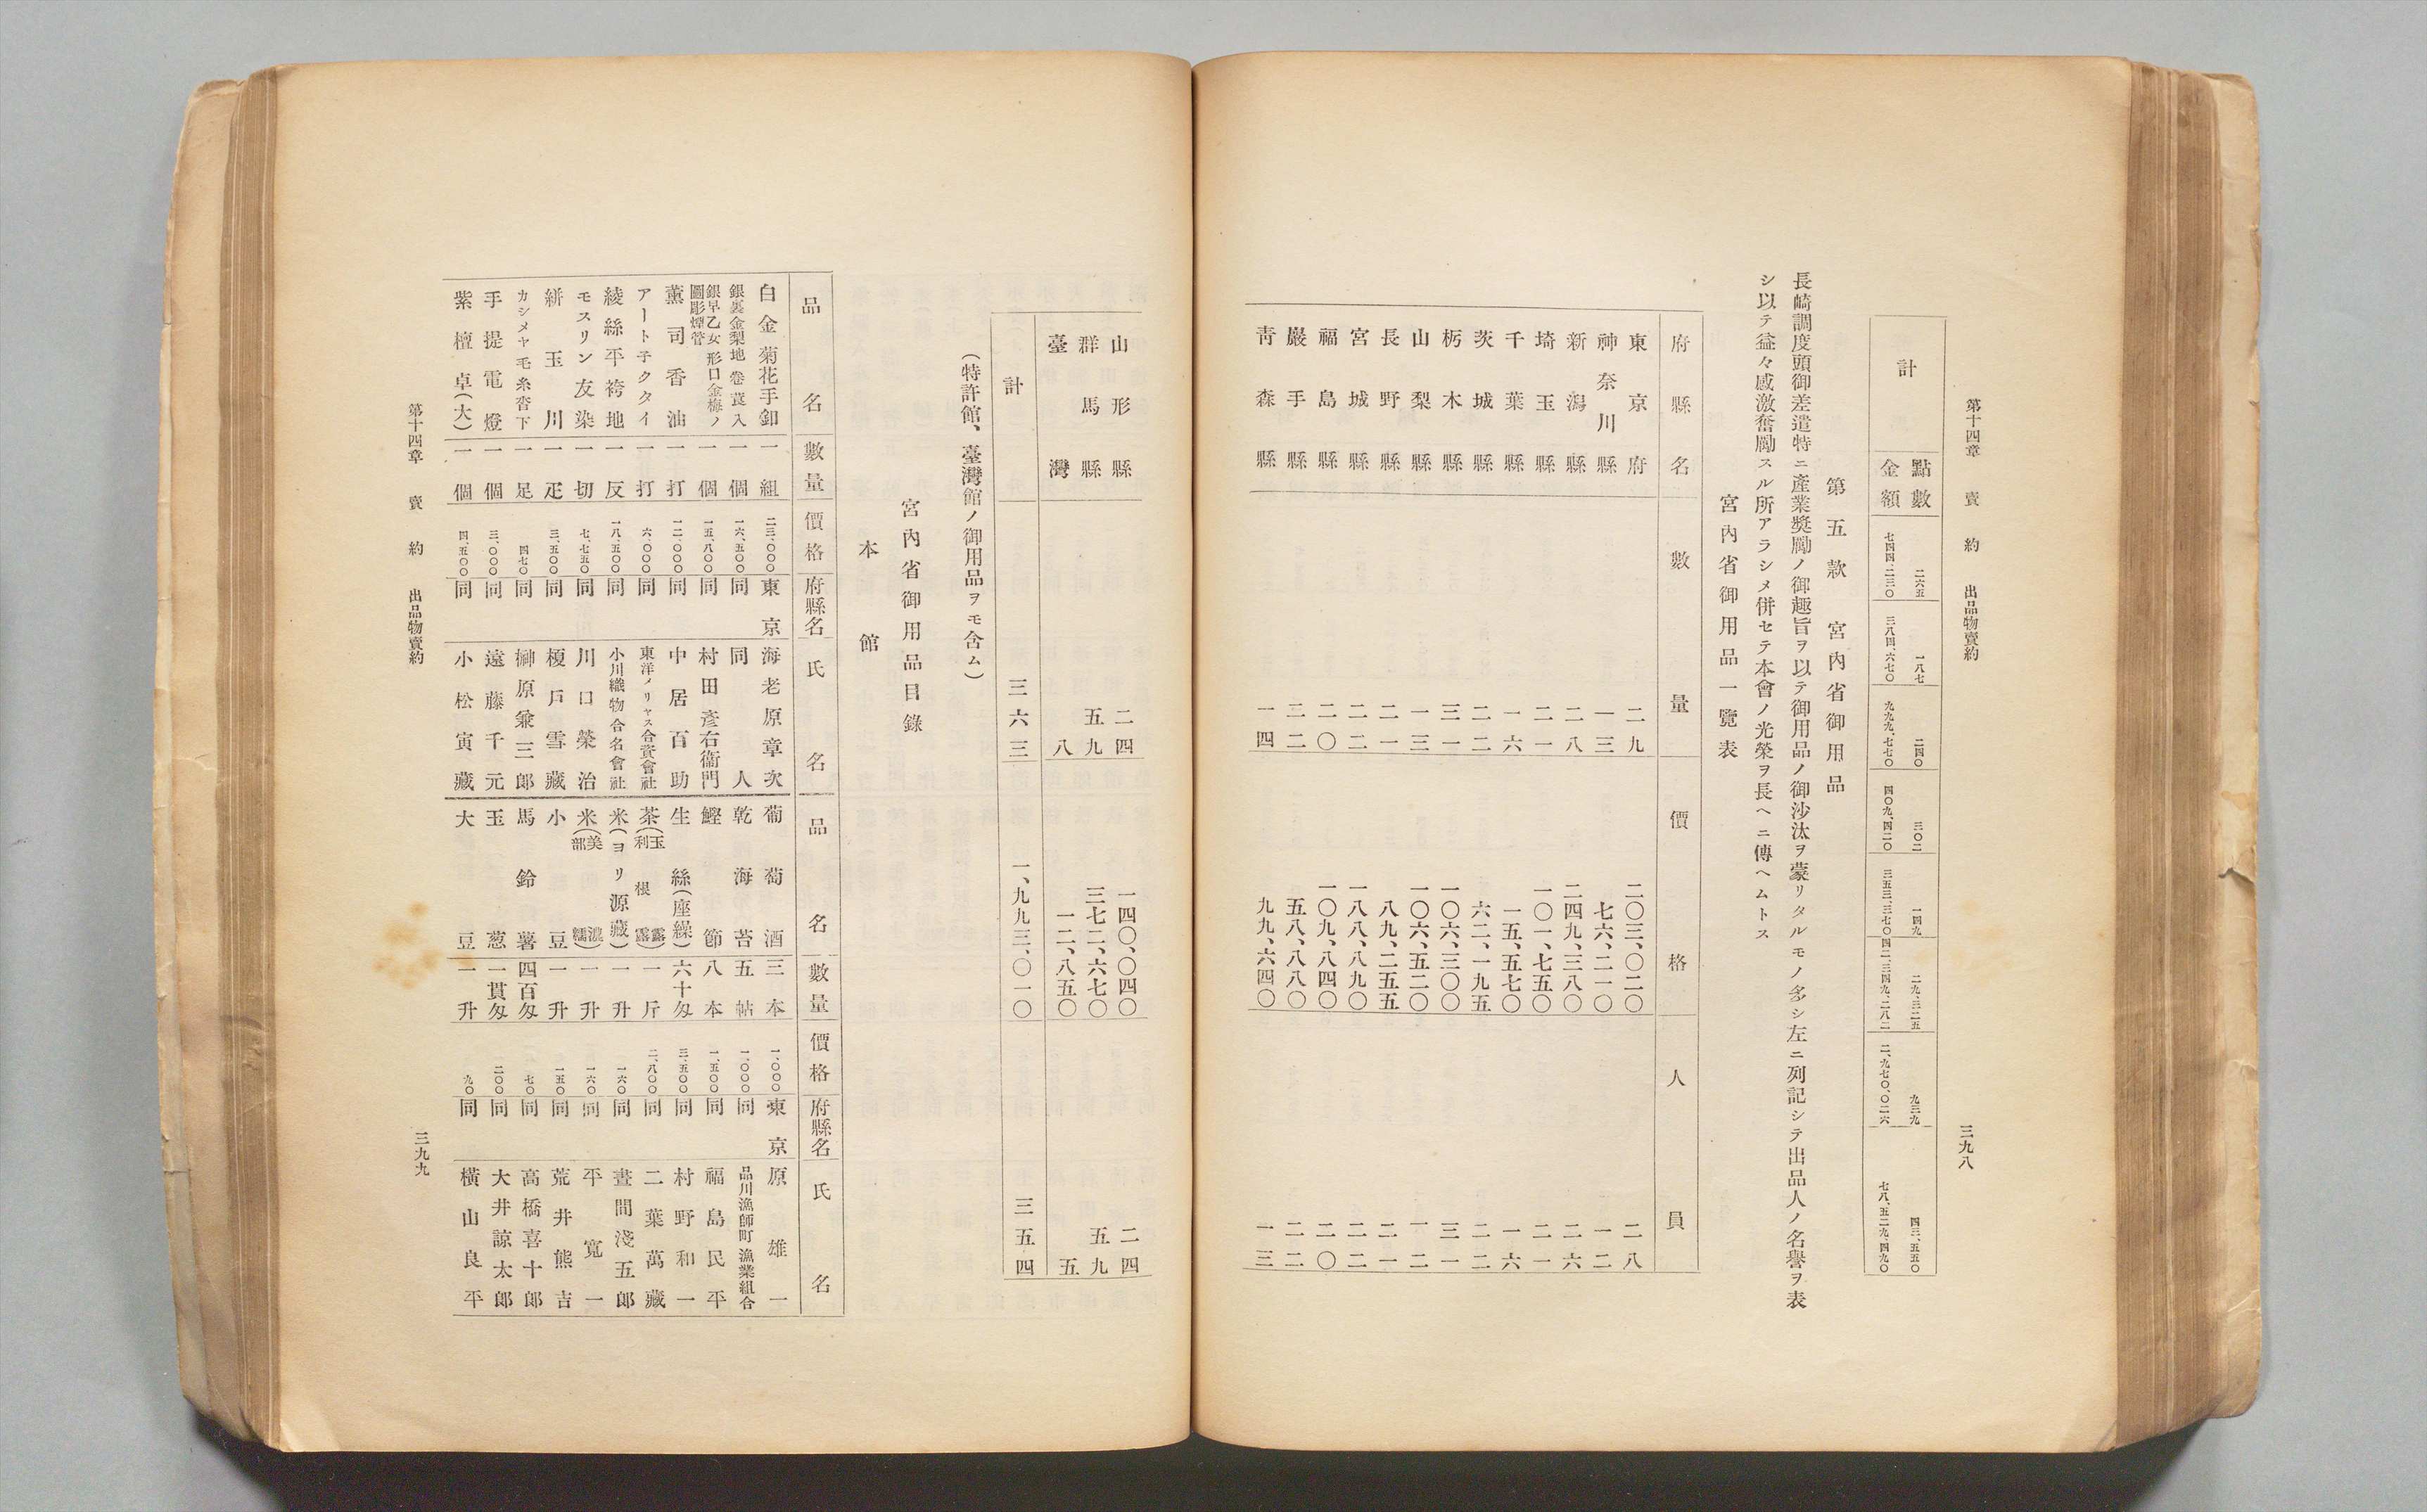 第十四章 賣約 出品物賣約 三九八
計
點數 二六五 一八七 二四〇 三〇二 一四九 二九、三二五 九三九 四三、五五〇
金額 七四四、二三〇 三八四、六七〇 九九九、七七〇 四〇九、四二〇 三五三、三七〇 四二、三四九、二八二 二、九七〇、〇二六 七八、五二九、四九〇
第五款 宮內省御用品
長崎調度頭御差遣特ニ產業奬勵ノ御趣旨ヲ以テ御用品ノ御沙汰ヲ蒙リタルモノ多シ左ニ列記シテ出品人ノ名譽ヲ表
シ以テ益々感激奮勵スル所アラシメ併セテ本會ノ光榮ヲ長ヘニ傳ヘムトス
宮內省御用品一覽表
府縣名 數量 價格 人員
東京府 二九 二〇三、〇二〇 二八
神奈川縣 一三 七六、二一〇 一二
新潟縣 二八 二四九、三八〇 二六
埼玉縣 二一 一〇一、七五〇 二一
千葉縣 一六 一五、五七〇 一六
茨城縣 二二 六二、一九五 二二
栃木縣 三一 一〇六、三〇〇 三一
山梨縣 一三 一〇六、五二〇 一二
長野縣 二一 八九、二五五 二一
宮城縣 二二 一八八、八九〇 二二
福島縣 二〇 一〇九、八四〇 二〇
巖手縣 二二 五八、八八〇 二二
靑森縣 一四 九九、六四〇 一三
山形縣 二四 一四〇、〇四〇 二四
群馬縣 五九 三七二、六七〇 五九
臺灣 八 一二、八五〇 五
計 三六三 一、九九三、〇一〇 三五四
(特許館、臺灣館ノ御用品ヲモ含ム)
宮內省御用品目錄
本館
品名 數量 價格 府縣名 氏名 品名 數量 價格 府縣名 氏名
白金菊花手釦 一組 二三、〇〇〇 東京 海老原章次 葡萄酒 三本 一、〇〇〇 東京 原雄一
銀裏金梨地卷莨入 一個 一六、五〇〇 同 同人 乾海苔 五帖 一、〇〇〇 同 品川漁師町漁業組合
銀早乙女形口金梅ノ圖彫煙管 一個 一五、八〇〇 同 村田彥右衞門 鰹節 八本 一、五〇〇 同 福島民平
薰司香油 一打 一二、〇〇〇 同 中居百助 生絲(座繰) 六十匁 三、五〇〇 同 村野和一
アートネクタイ 一打 六、〇〇〇 同 東洋メリヤス合資會社 茶(玉露利根露) 一斤 二、八〇〇 同 二葉萬藏
綾絲平袴地 一反 一八、五〇〇 同 小川織物合名會社 米(ヨリ源藏) 一升 一六〇 同 晝間淺五郎
モスリン友染 一切 七、七五〇 同 川口榮治 米(美濃部糯) 一升 一六〇 同 平寬一
絣玉川 一疋 三、五〇〇 同 榎戶雪藏 小豆 一升 一五〇 同 荒井熊吉
カシメヤモ糸沓下 一足 四七〇 同 榊原兼三郎 馬鈴薯 四百匁 七〇 同 高橋喜十郎
手提電燈 一個 三、〇〇〇 同 遠藤千元 玉葱 一貫匁 二〇〇 同 大井諒太郎
紫檀卓(大) 一個 四、五〇〇 同 小松寅藏 大豆 一升 九〇 同 橫山良平
第十四章 賣約 出品物賣約 三九九